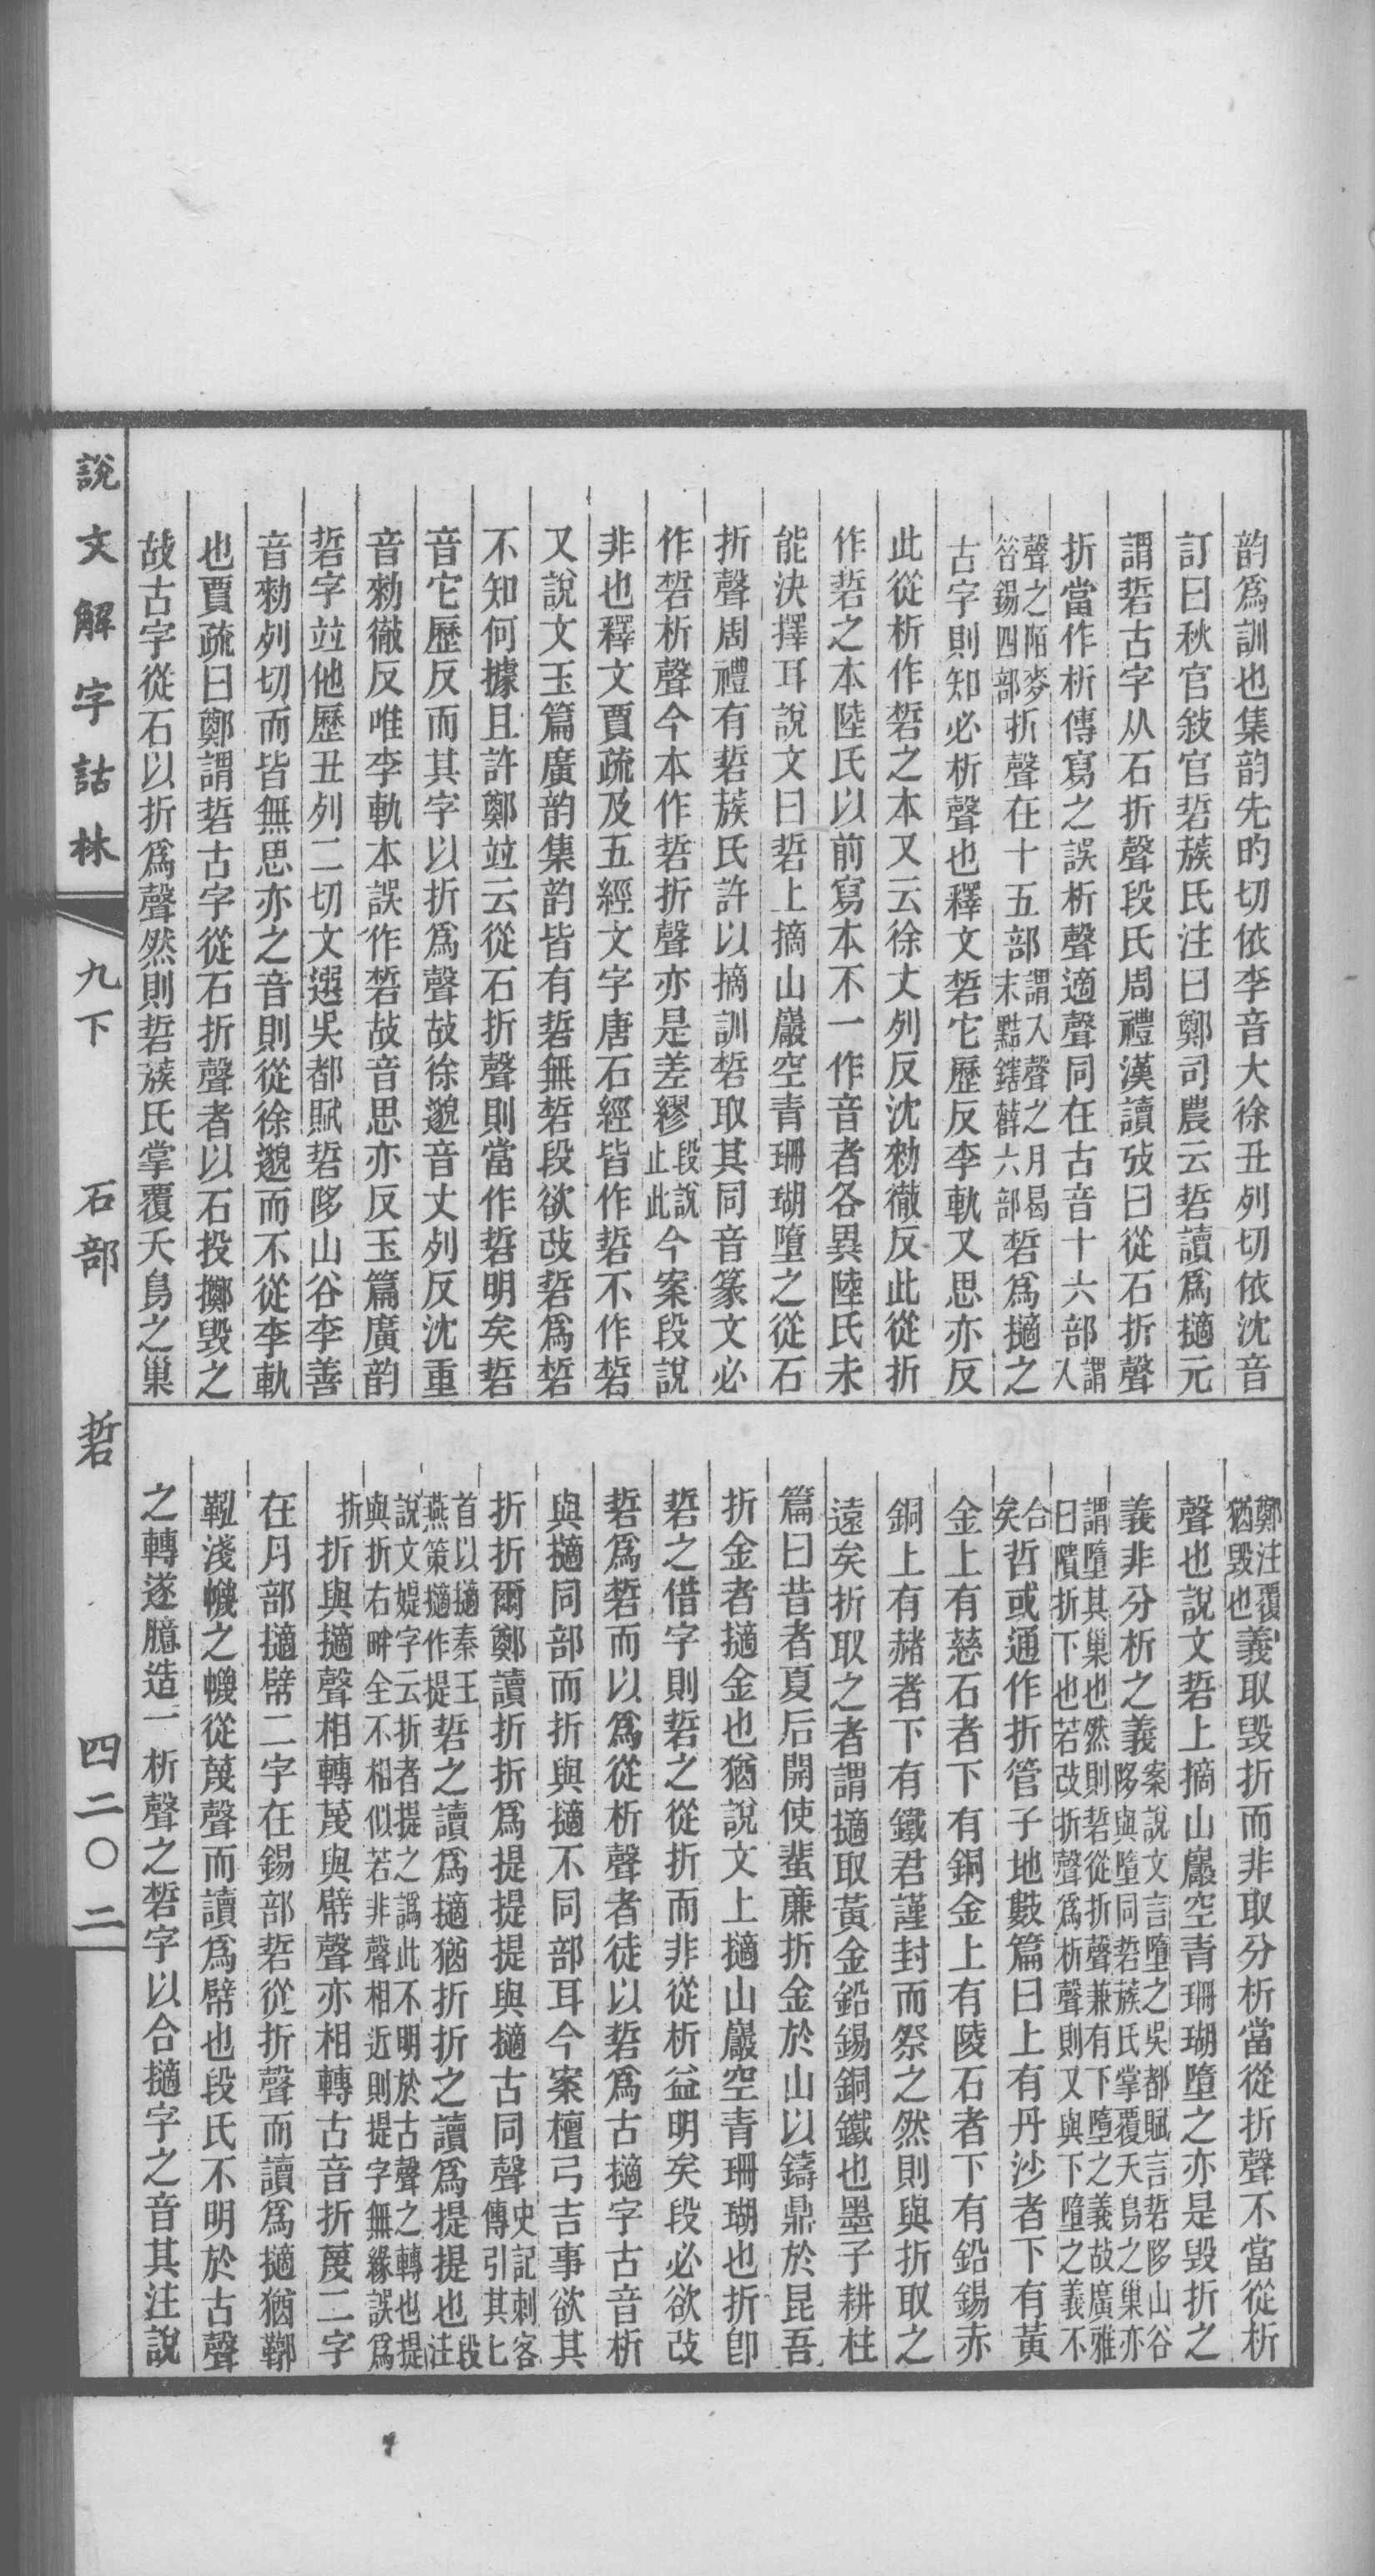 韵爲訓也集韵先的切依李音大徐丑列切依沈音
訂曰秋官敍官硩蔟氏注曰鄭司農云硩讀爲擿元
謂硩古字从石折聲段氏周禮漢讀攷曰從石折聲
折當作析傳寫之誤析聲適聲同在古音十六部謂入
聲之陌麥答錫四部折聲在十五部謂入聲之月曷末黠鎋薛六部䂣爲擿之
古字則知必析聲也釋文䂣它歷反李軌又思亦反
此從析作䂣之本又云徐丈列反沈勑徹反此從折
作硩之本陸氏以前寫本不一作音者各異陸氏未
能決擇耳說文曰硩上摘山巖空青珊瑚墮之從石
折聲周禮有硩蔟氏許以摘訓䂣取其同音篆文必
作䂣析聲今本作硩折聲亦是差繆段說止此今案段說
非也釋文賈疏及五經文字唐石經皆作硩不作䂣
又說文玉篇廣韵集韵皆有硩無䂣段欲改硩爲䂣
不知何據且許鄭竝云從石折聲則當作硩明矣硩
音它歷反而其字以折爲聲故徐邈音丈列反沈重
音勑徹反唯李軌本誤作䂣故音思亦反玉篇廣韵
硩字竝他歷丑列二切文選吳都賦硩陊山谷李善
音勑列切而皆無思亦之音則從徐邈而不從李軌
也賈疏曰鄭謂硩古字從石折聲者以石投擲毀之
故古字從石以折爲聲然則硩蔟氏掌覆夭鳥之巢
鄭注覆猶毀也義取毀折而非取分析當從折聲不當從析
聲也說文硩上摘山巖空青珊瑚墮之亦是毀折之
義非分析之義案說文言墮之吳都賦言硩陊山谷陊與墮同硩蔟氏掌覆夭鳥之巢亦
謂墮其巢也然則硩從折聲兼有下墮之義故廣雅曰隤折下也若改折聲爲析聲則又與下墮之義不
合矣哲或通作折管子地數篇曰上有丹沙者下有黃
金上有慈石者下有銅金上有陵石者下有鉛錫赤
銅上有赭者下有鐵君謹封而祭之然則與折取之
遠矣折取之者謂擿取黃金鉛錫銅鐵也墨子耕柱
篇曰昔者夏后開使蜚廉折金於山以鑄鼎於昆吾
折金者擿金也猶說文上擿山巖空青珊瑚也折卽
硩之借字則硩之從折而非從析益明矣段必欲改
硩爲䂣而以爲從析聲者徒以硩爲古擿字古音析
與擿同部而折與擿不同部耳今案檀弓吉事欲其
折折爾鄭讀折折爲提提提與擿古同聲史記刺客傳引其匕
首以擿秦王燕策擿作提硩之讀爲擿猶折折之讀爲提提也段注
說文媞字云折者提之譌此不明於古聲之轉也提與折右畔全不相似若非聲相近則提字無緣誤爲
折折與擿聲相轉蔑與幦聲亦相轉古音折蔑二字
在月部擿幦二字在錫部硩從折聲而讀爲擿猶鞹
鞃淺幭之幭從蔑聲而讀爲幦也段氏不明於古聲
之轉遂臆造一析聲之䂣字以合擿字之音其注說
說文解字詁林 九下 石部 硩 四二〇二